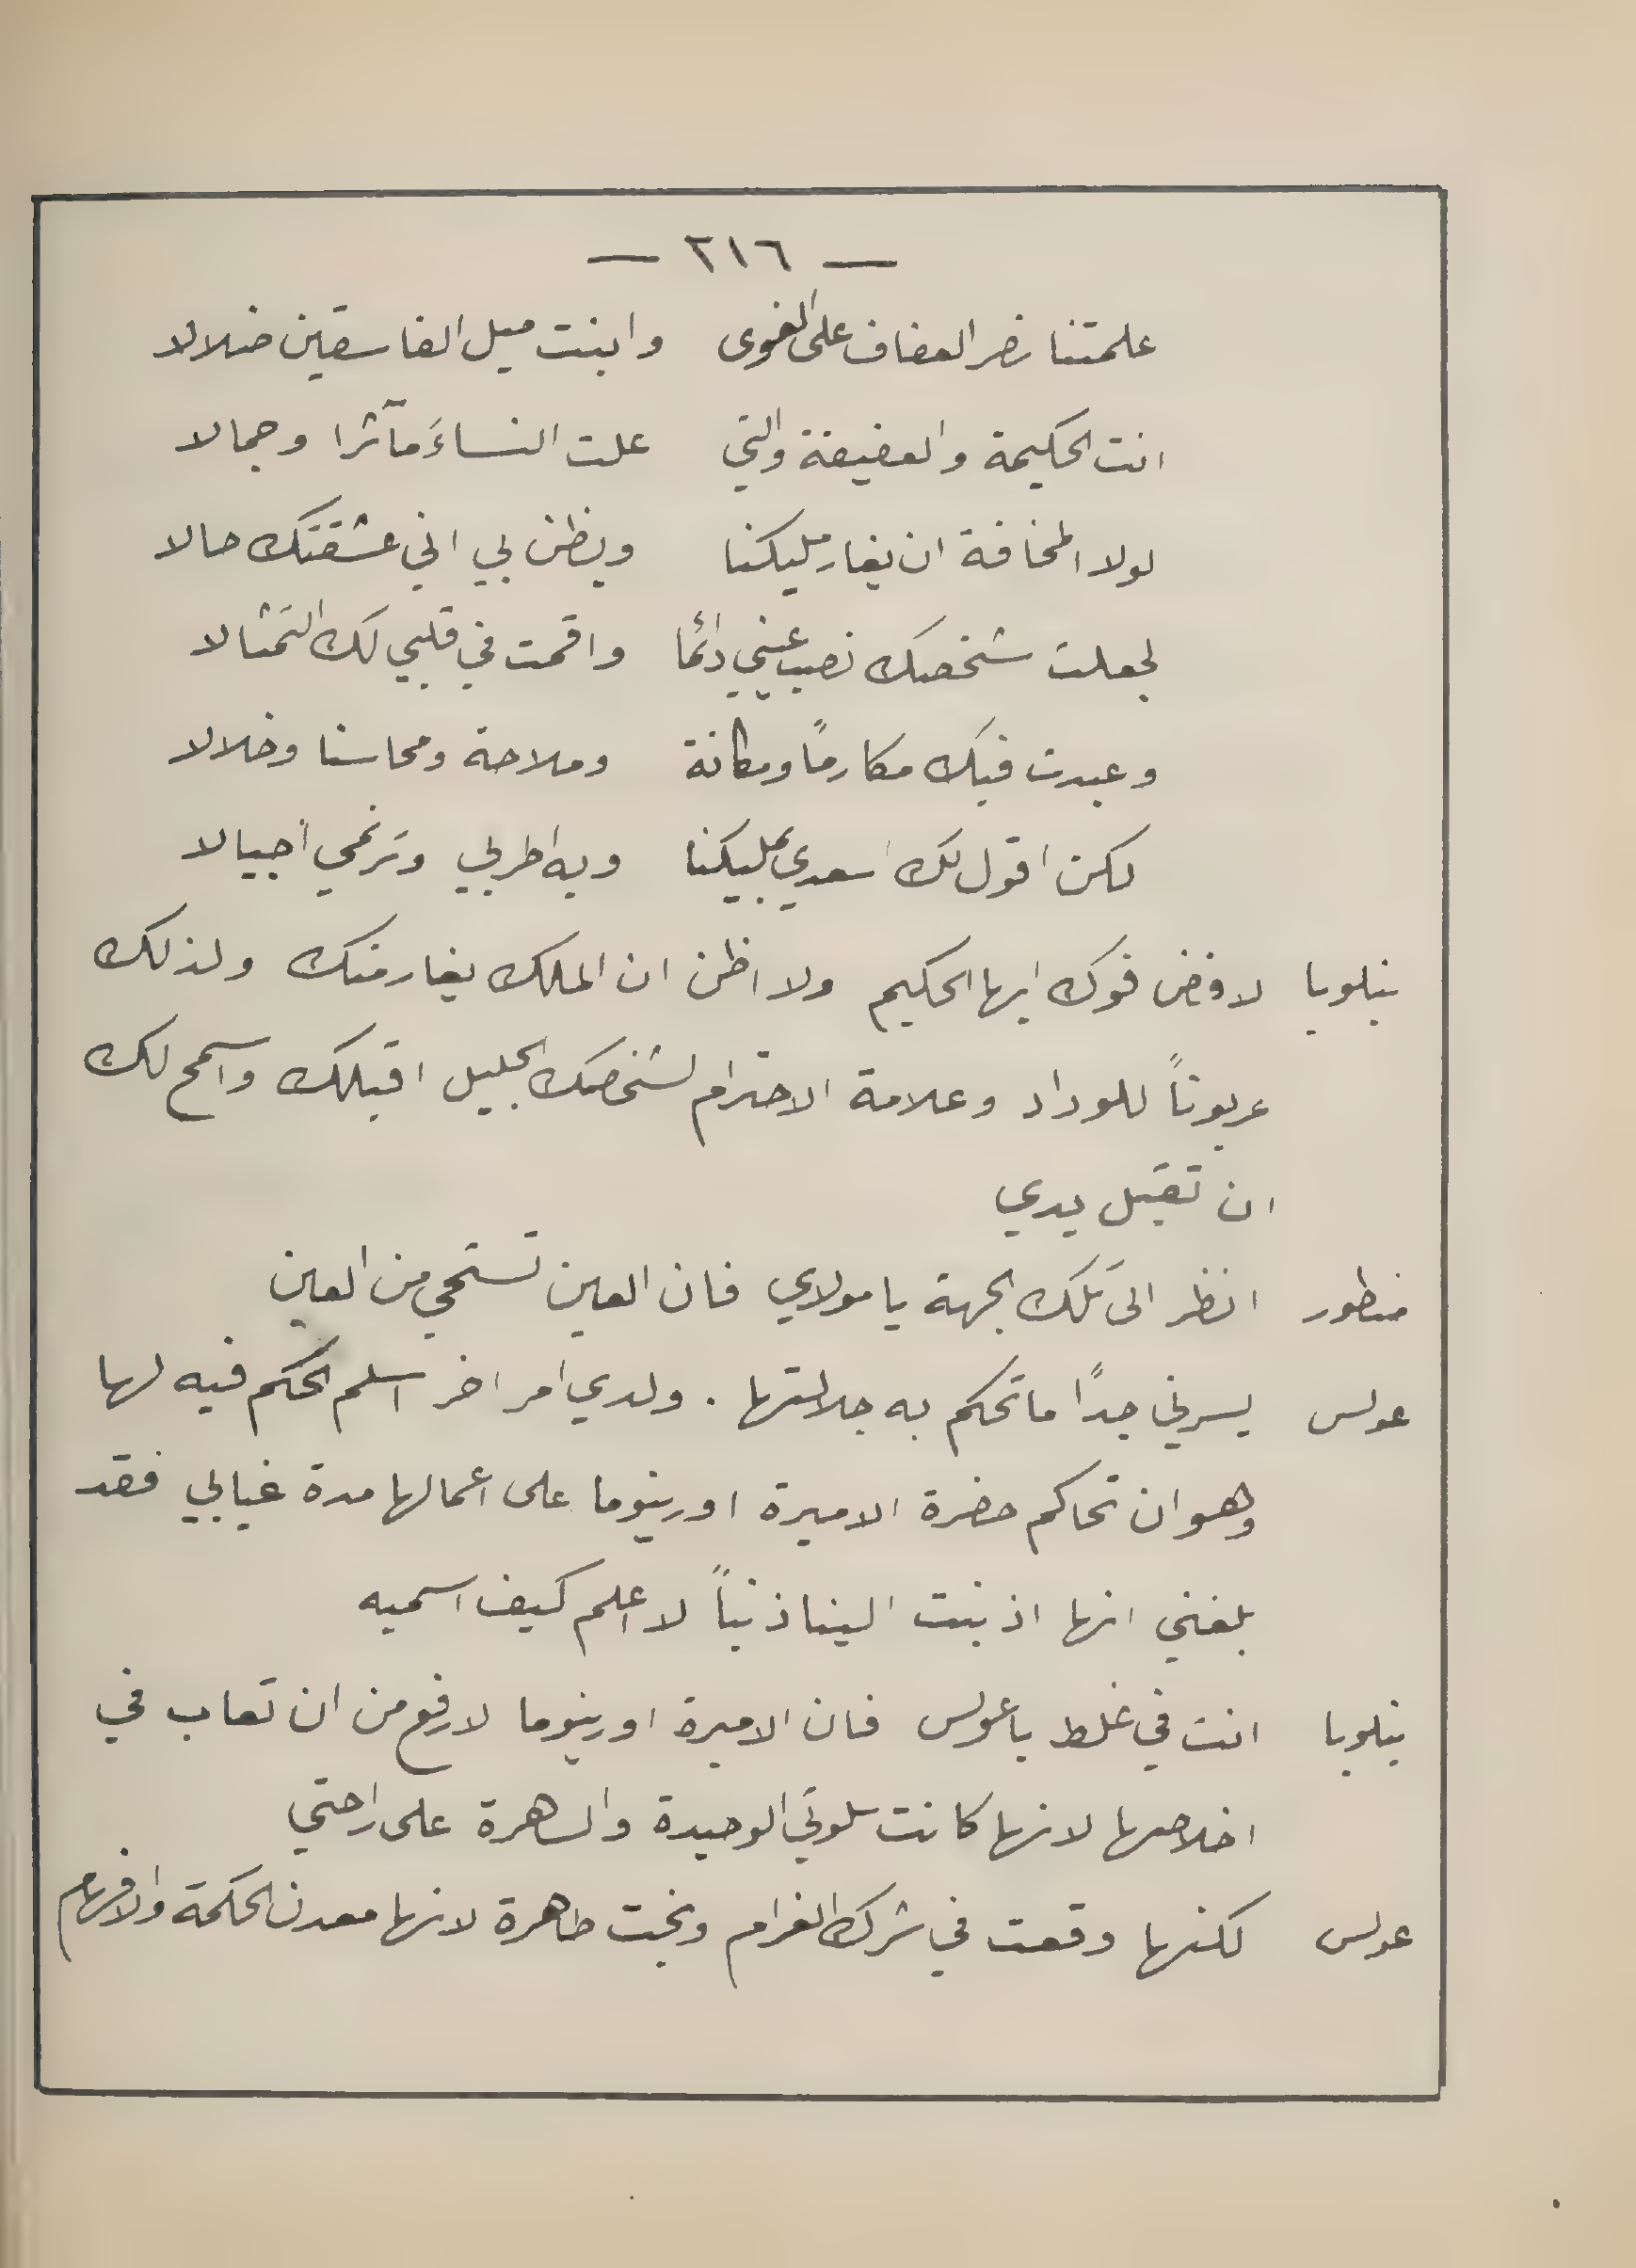 — ٢١٦ —
علمتنا نصر العفاف على الغوى وابنت ميل الفاسقين ضلالا
انت الحكيمة والعفيفة والتي علت النساءَ مآثرا وجمالا
لولا المخافة ان يغار مليكنا ويظن بي اني عشقتك حالا
لجعلت شخصك نصب عيني دائما واقمت في قلبي لك التمثالا
وعبدت فيك مكارمًا ومكانة وملاحة ومحاسنا وخلالا
لكن اقول لك اسعدي بمليكنا وبه اطربي وترنمي اجيالا
بنلوبا لا فض فوك ايها الحكيم ولا اظن ان الملك يغار منك ولذلك
عربوناً للوداد وعلامة الاحترام لشخصك الجليل اقبلك واسمح لك
ان تقبل يدي
منطور انظر الى تلك الجهة يا مولاي فان العين تستحي من العين
عولس يسرني جدًا ما تحكم به جلالتها . ولدي امر اخر اسلم الحكم فيه لها
وهو ان تحاكم حضرة الاميرة اورينوما على اعمالها مدة غيابي فقد
بلغني انها اذنبت الينا ذنباً لا اعلم كيف اسميه
بنلوبا انت في غلط يا عولس فان الاميرة اورينوما لارفع من ان تعاب في
اخلاصها لانها كانت سلوتي الوحيدة والساهرة على راحتي
عولس لكنها وقعت في شرك الغرام ونجت طاهرة لانها معدن الحكمة والافهام